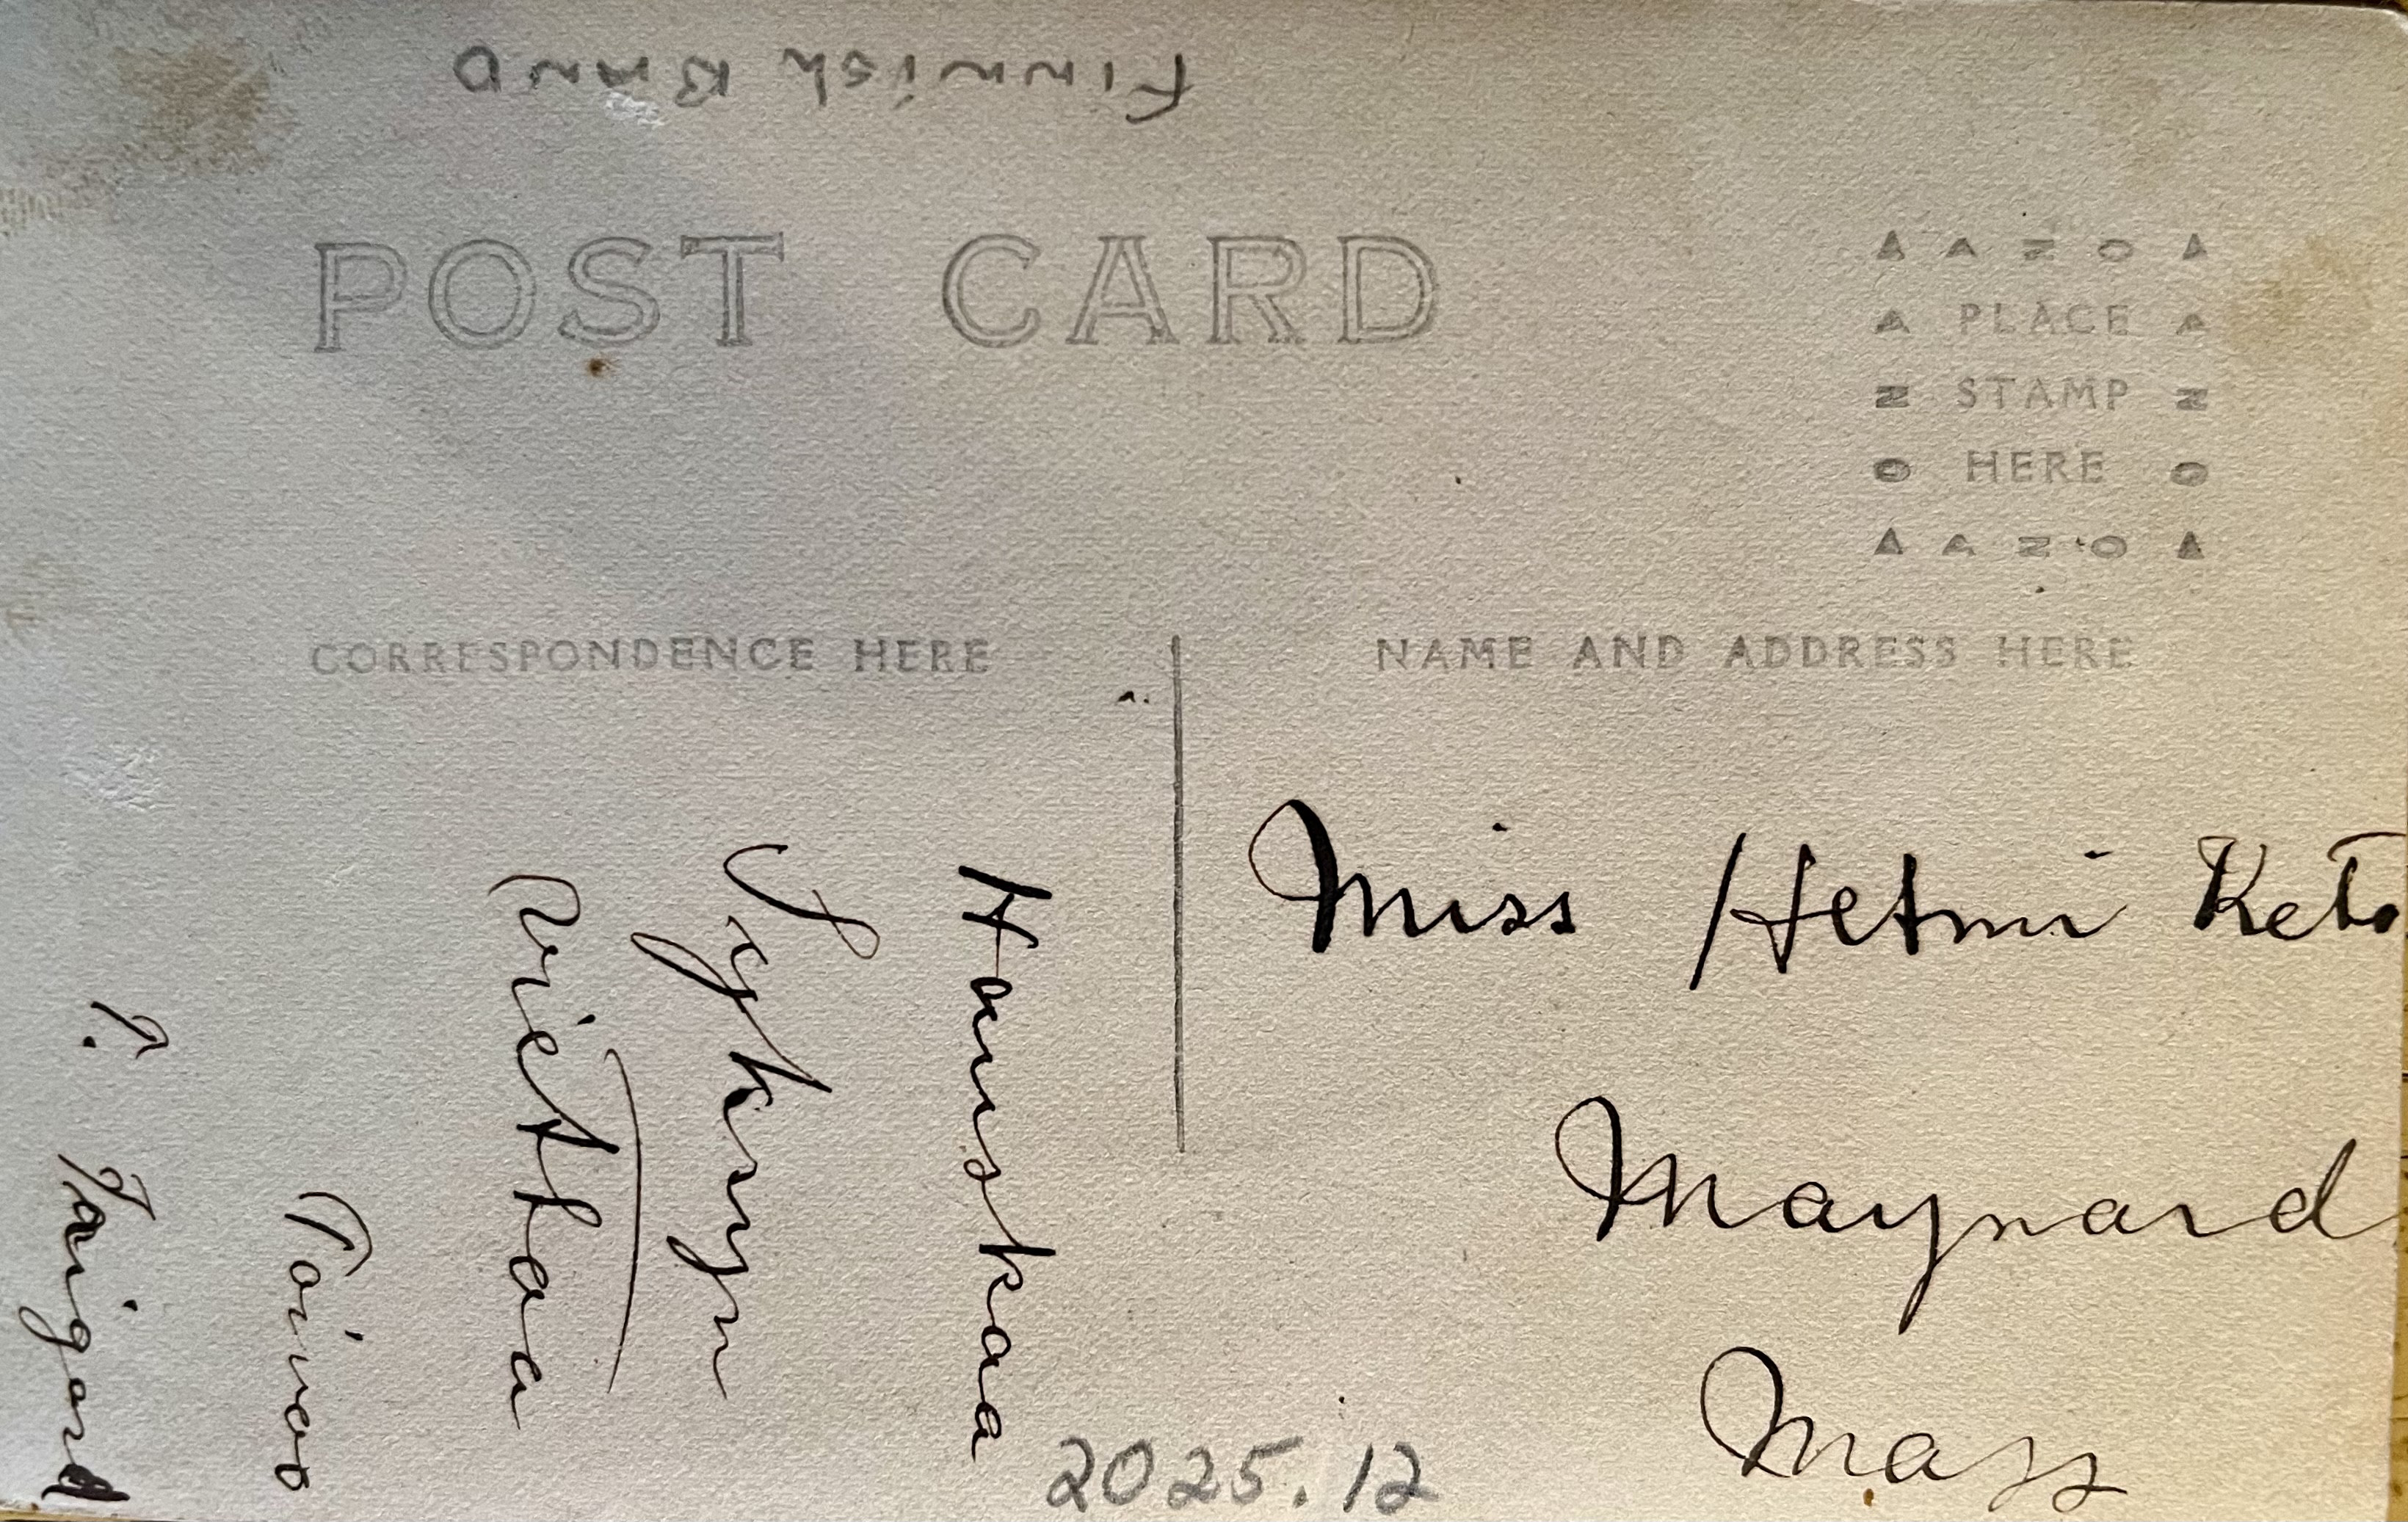 Finnish Band
POST CARD
AZO
PLACE
STAMP
HERE
AZO
CORRESPONDENCE HERE
NAME AND ADDRESS HERE
Miss Helmi Keto
Maynard
Mass
Hauskaa
Syksyn
viettoa
Toivoo
T.
2025.12